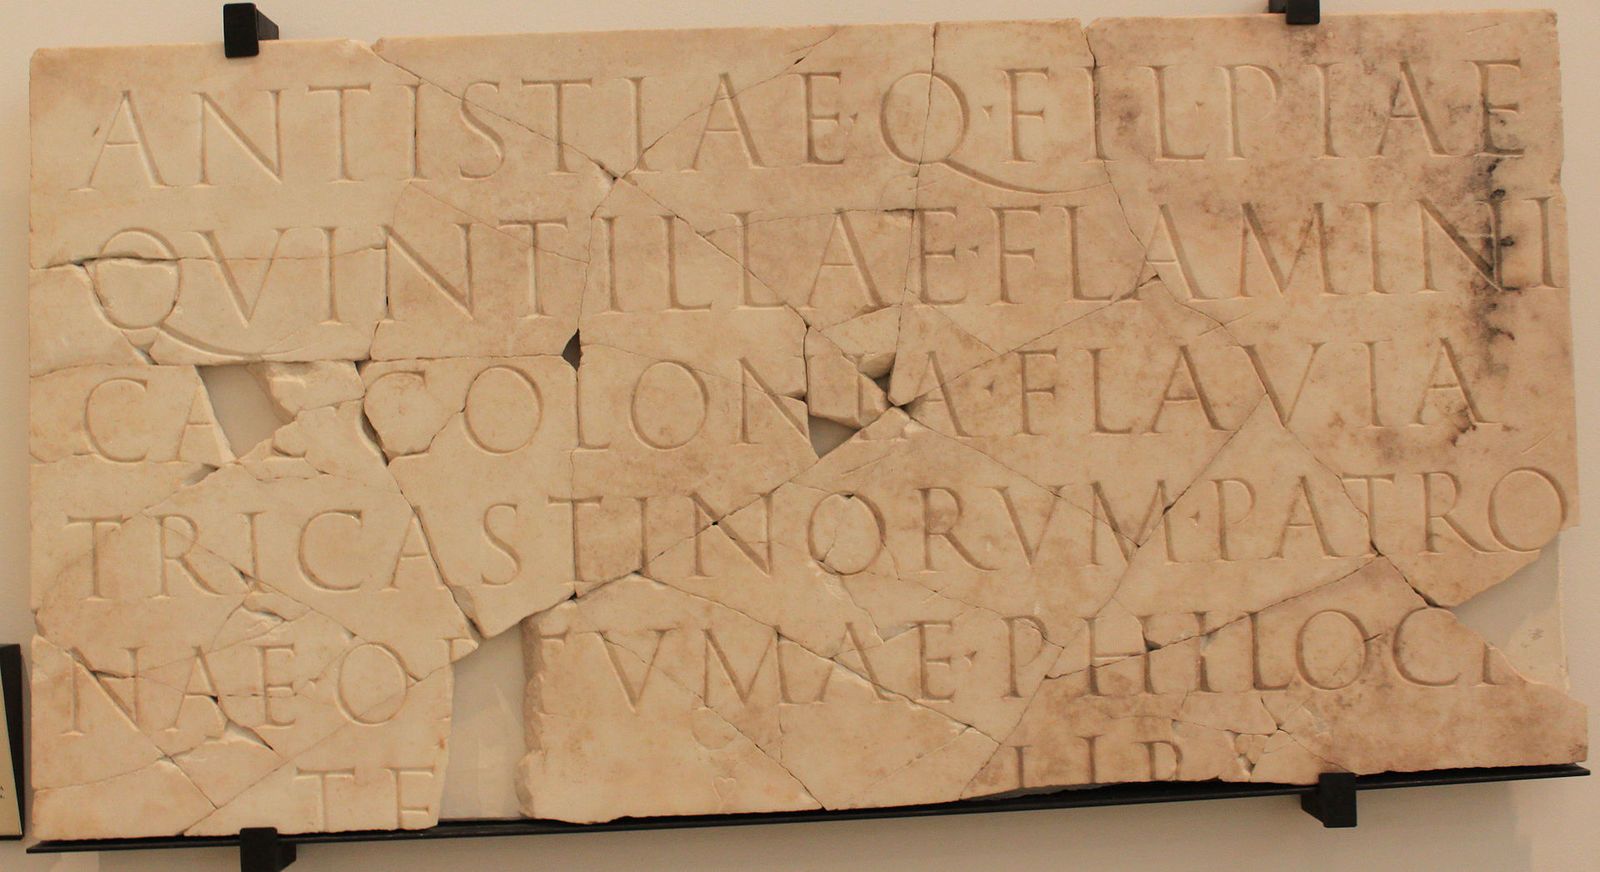 ANTISTIAE·Q·FIL·PIAE
QVINTILLAE·FLAMINI
CAE COLONIA·FLAVIA
TRICASTINORVM·PATRO
NAE·OPTVMAE·PHILOC
TE LIB